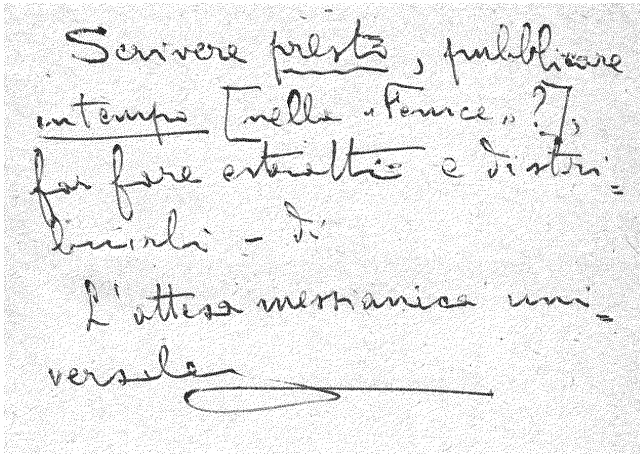 Scrivere presto, pubblicare
in tempo [nella «Fenice»?],
far fare estratti e distri=
buirli - di
L'attesa messianica uni=
versale